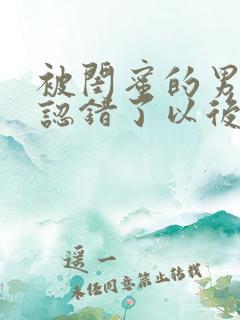 被閨蜜的男
認錯了以後
遥一
未经同意禁止转载